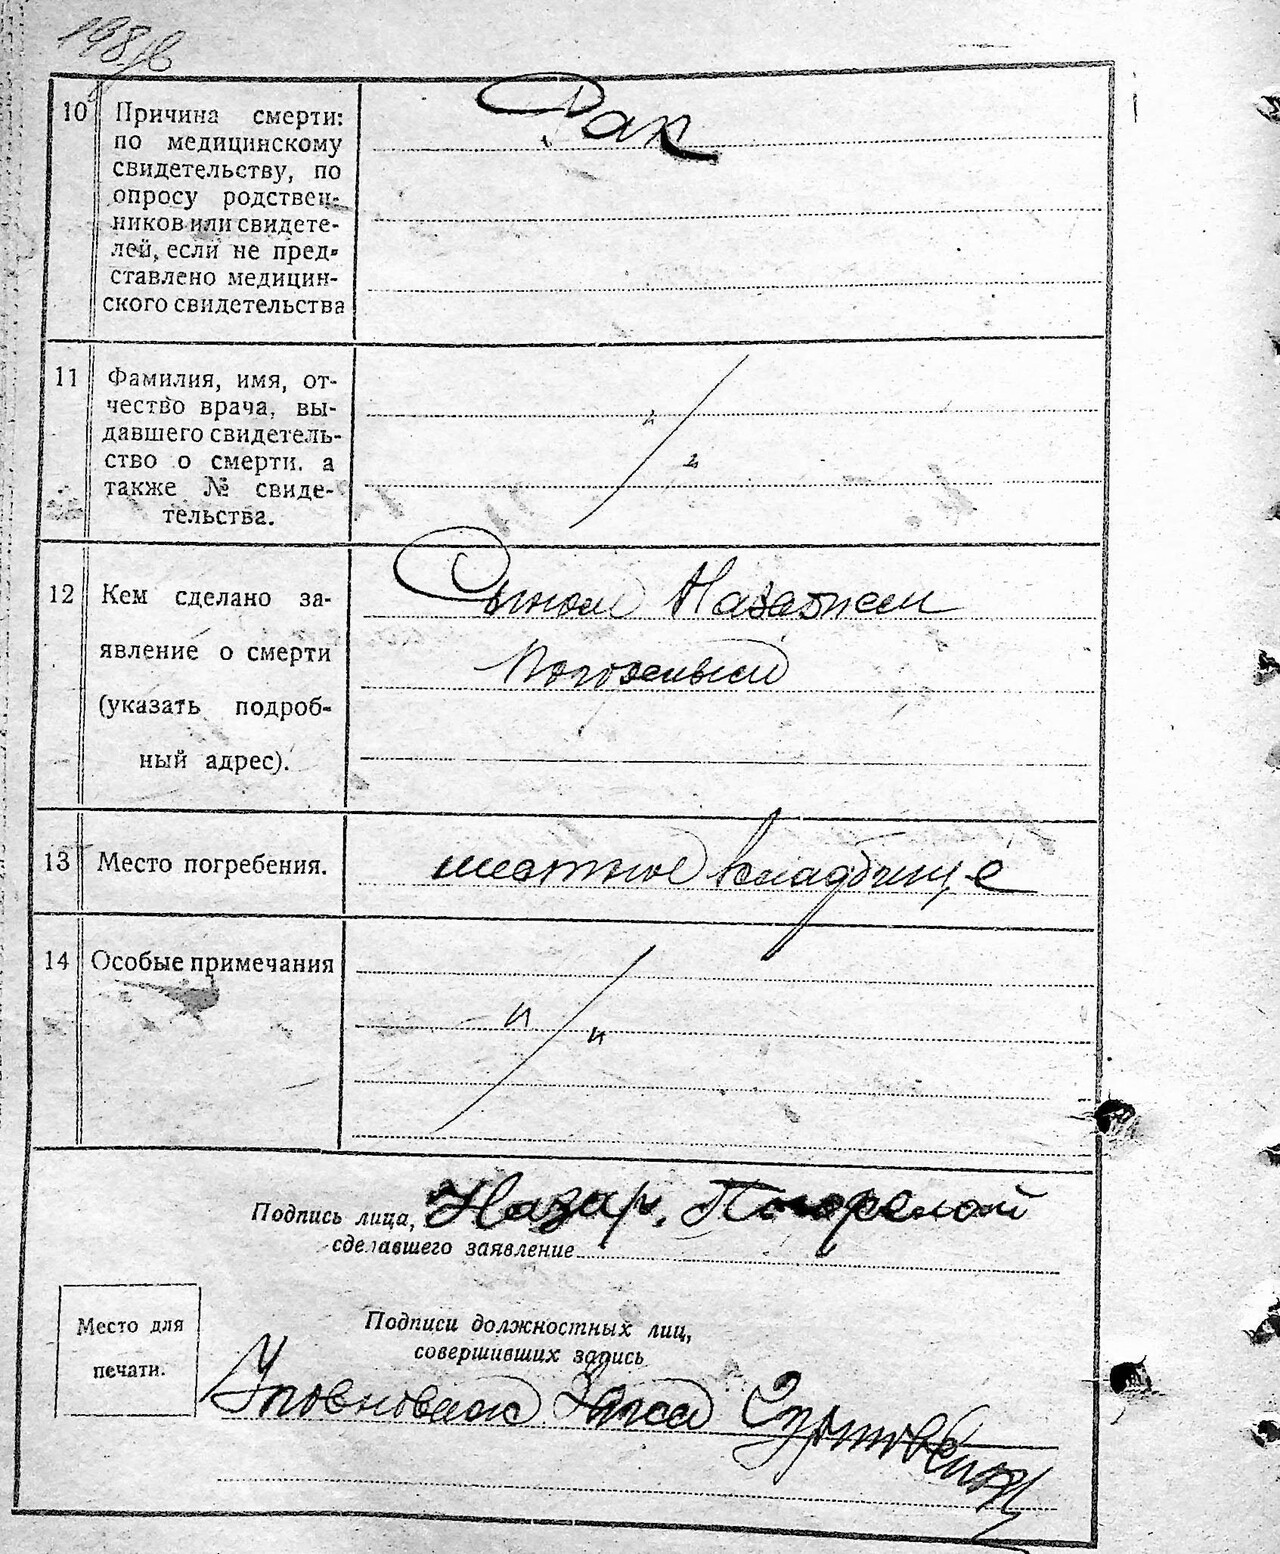 198
10 Причина смерти:
по медицинскому
свидетельству, по
опросу родствен-
ников или свидете-
лей, если не пред-
ставлено медицин-
ского свидетельства
Рак
11 Фамилия, имя, от-
чество врача, вы-
давшего свидетель-
ство о смерти, а
также № свиде-
тельства.
12 Кем сделано за-
явление о смерти
(указать подроб-
ный адрес).
Сыном
13 Место погребения.
местное кладбище
14 Особые примечания
Подпись лица, Назар. Погорелой
сделавшего заявление
Место для
печати.
Подписи должностных лиц,
совершивших запись